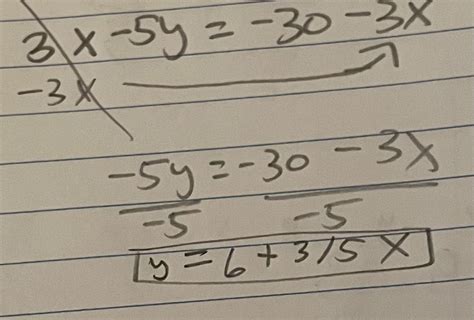 3x -5y = -30 -3x
-3x
-5y = -30 - 3x
-5 -5
y = 6 + 3/5 x